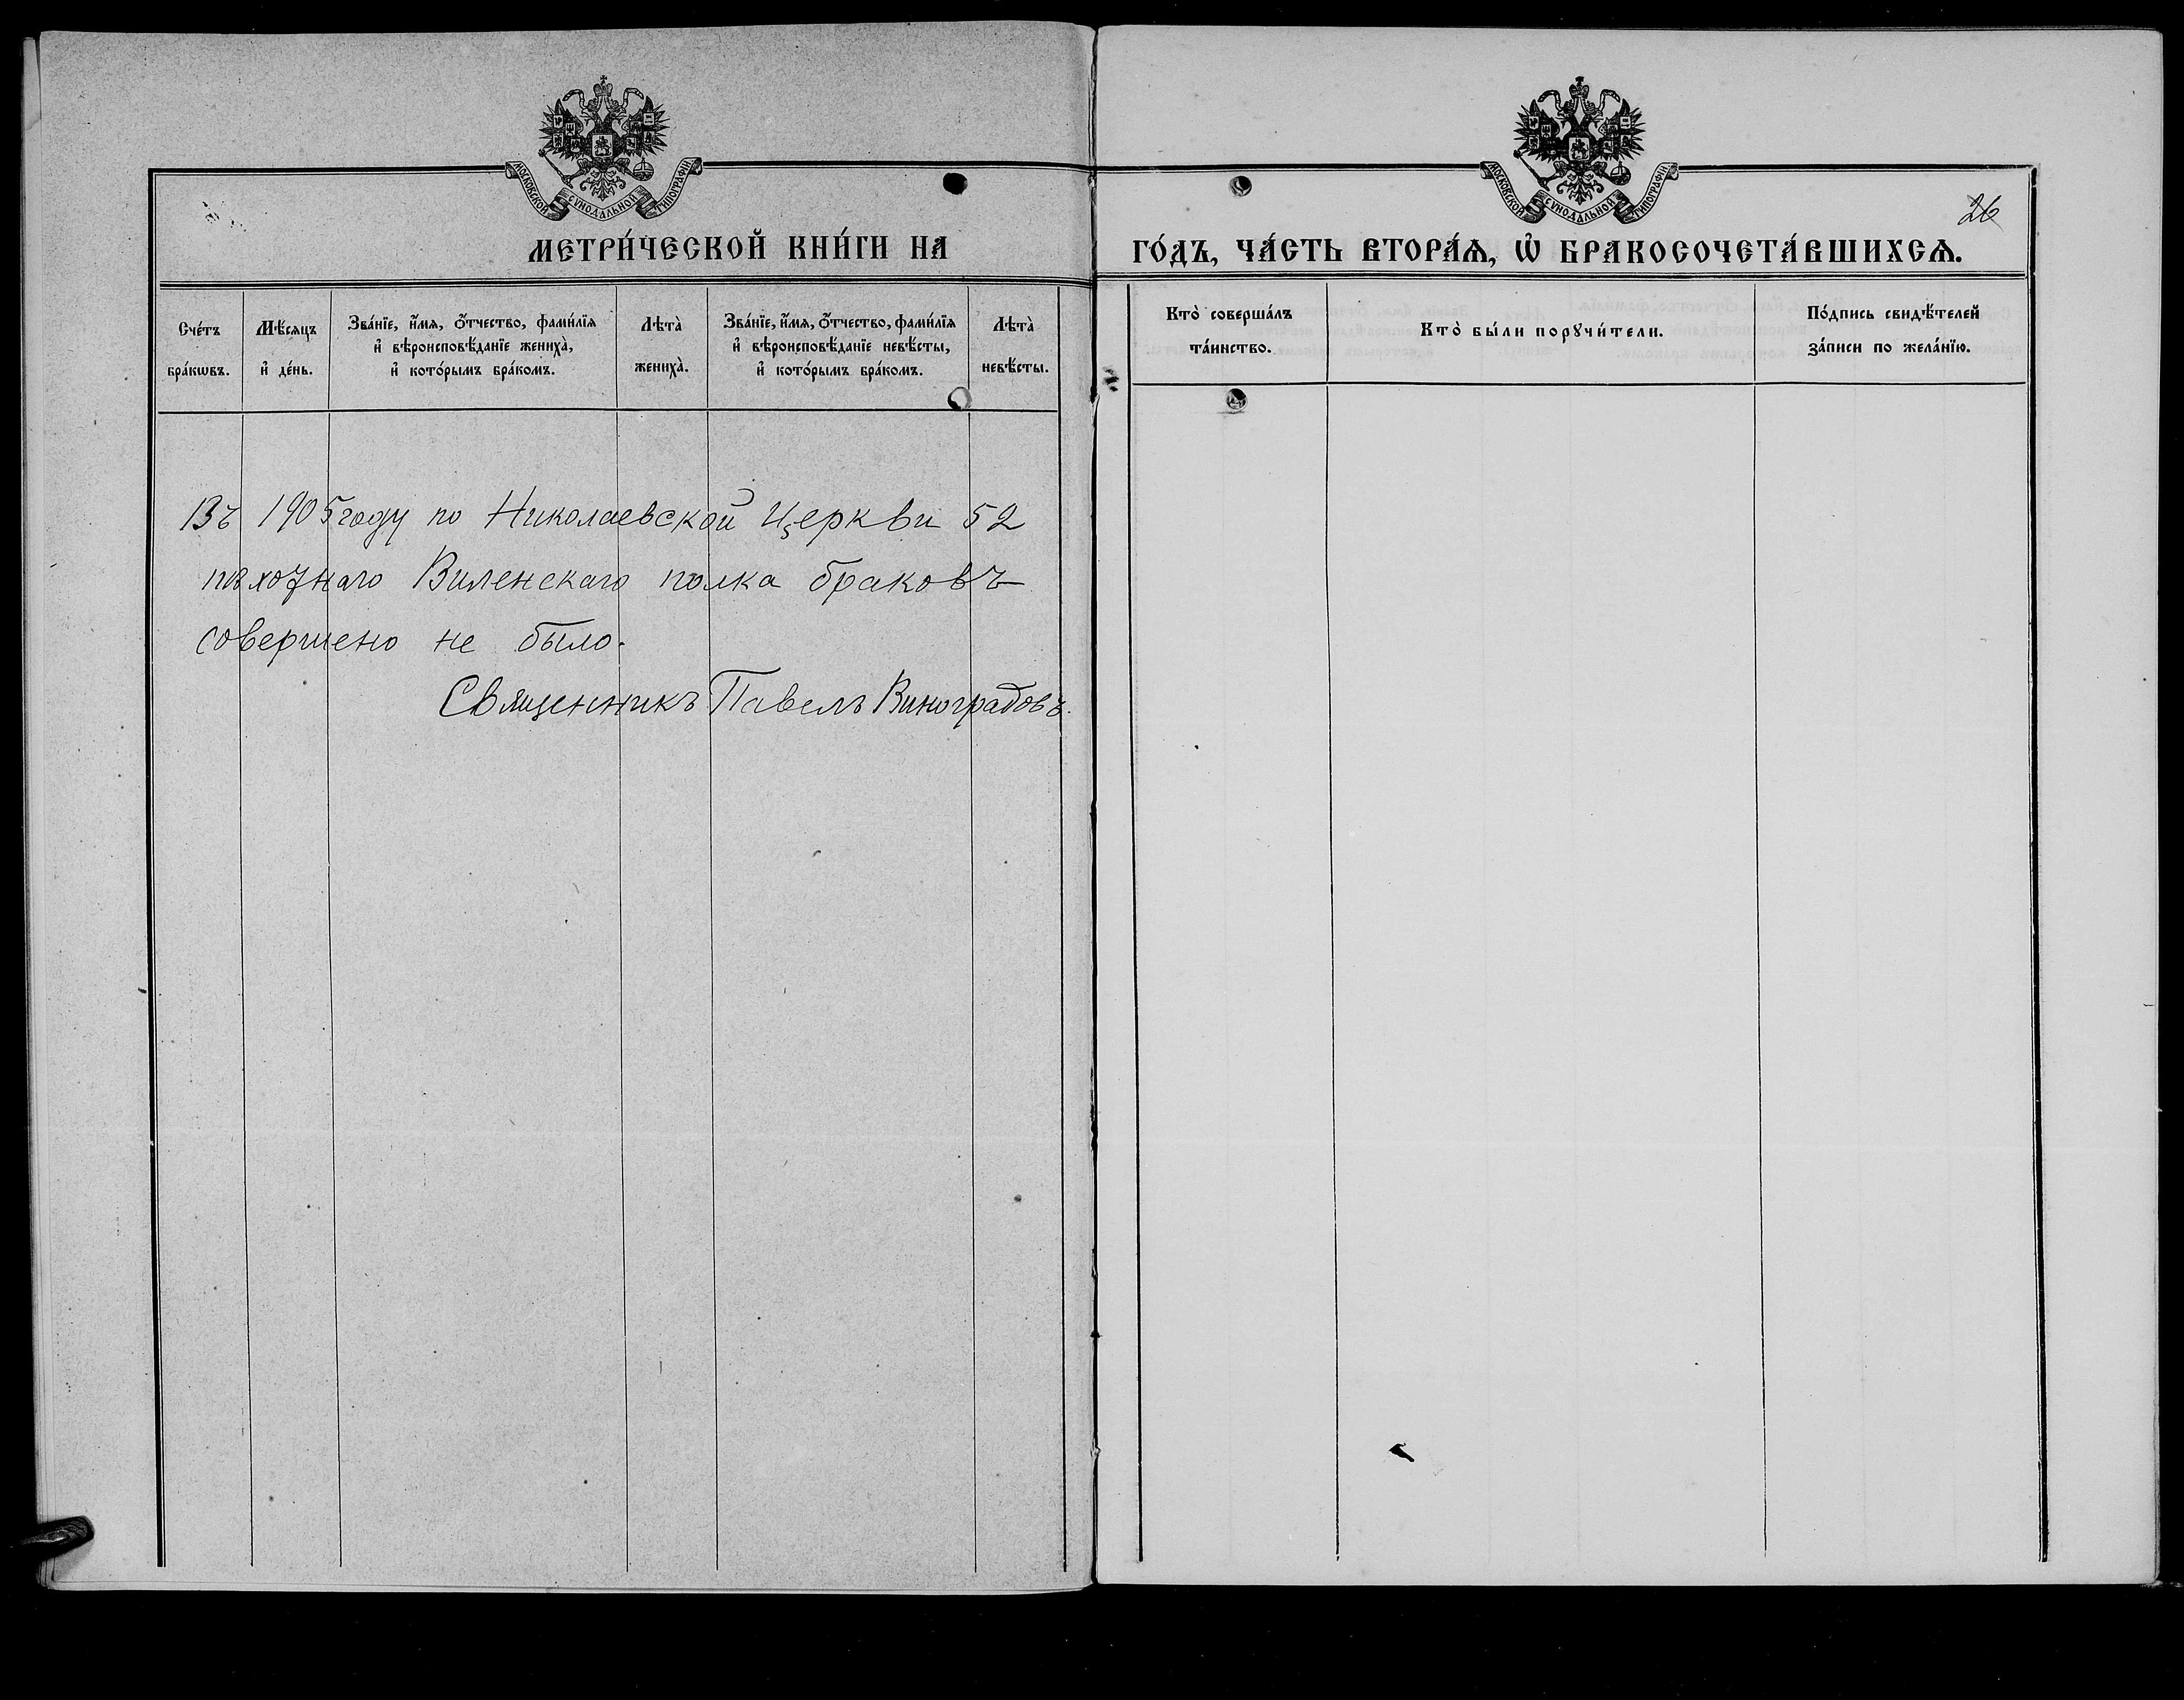 МОСКОВСКОЙ СУНОДАЛЬНОЙ ТИПОГРАФІИ
МЕТРИ́ЧЕСКОЙ КНИ́ГИ НА
Сче́тъ бра́кѡвъ.
Мѣ́сяцъ и҆ де́нь.
Зва́нїе, и҆́мѧ, ѻ҆́тчество, фами́лїѧ и҆ вѣроисповѣ́данїе жениха̀, и҆ кото́рымъ бра́комъ.
Лѣта̀ жениха̀.
Зва́нїе, и҆́мѧ, ѻ҆́тчество, фами́лїѧ и҆ вѣроисповѣ́данїе невѣ́сты, и҆ кото́рымъ бра́комъ.
Лѣта̀ невѣ́сты.
Въ 1905 году по Николаевской Церкви 52
пѣхотнаго Виленскаго полка браковъ
совершено не было.
Священникъ Павелъ Виноградовъ.
МОСКОВСКОЙ СУНОДАЛЬНОЙ ТИПОГРАФІИ
26
ГО́ДЪ, ЧА́СТЬ ВТОРА́Ѧ, Ѽ БРАКОСОЧЕТА́ВШИХСѦ.
Кто̀ соверша́лъ та́инство.
Кто̀ бы́ли порꙋчи́тели.
По́дпись свидѣ́телей за́писи по жела́нїю.